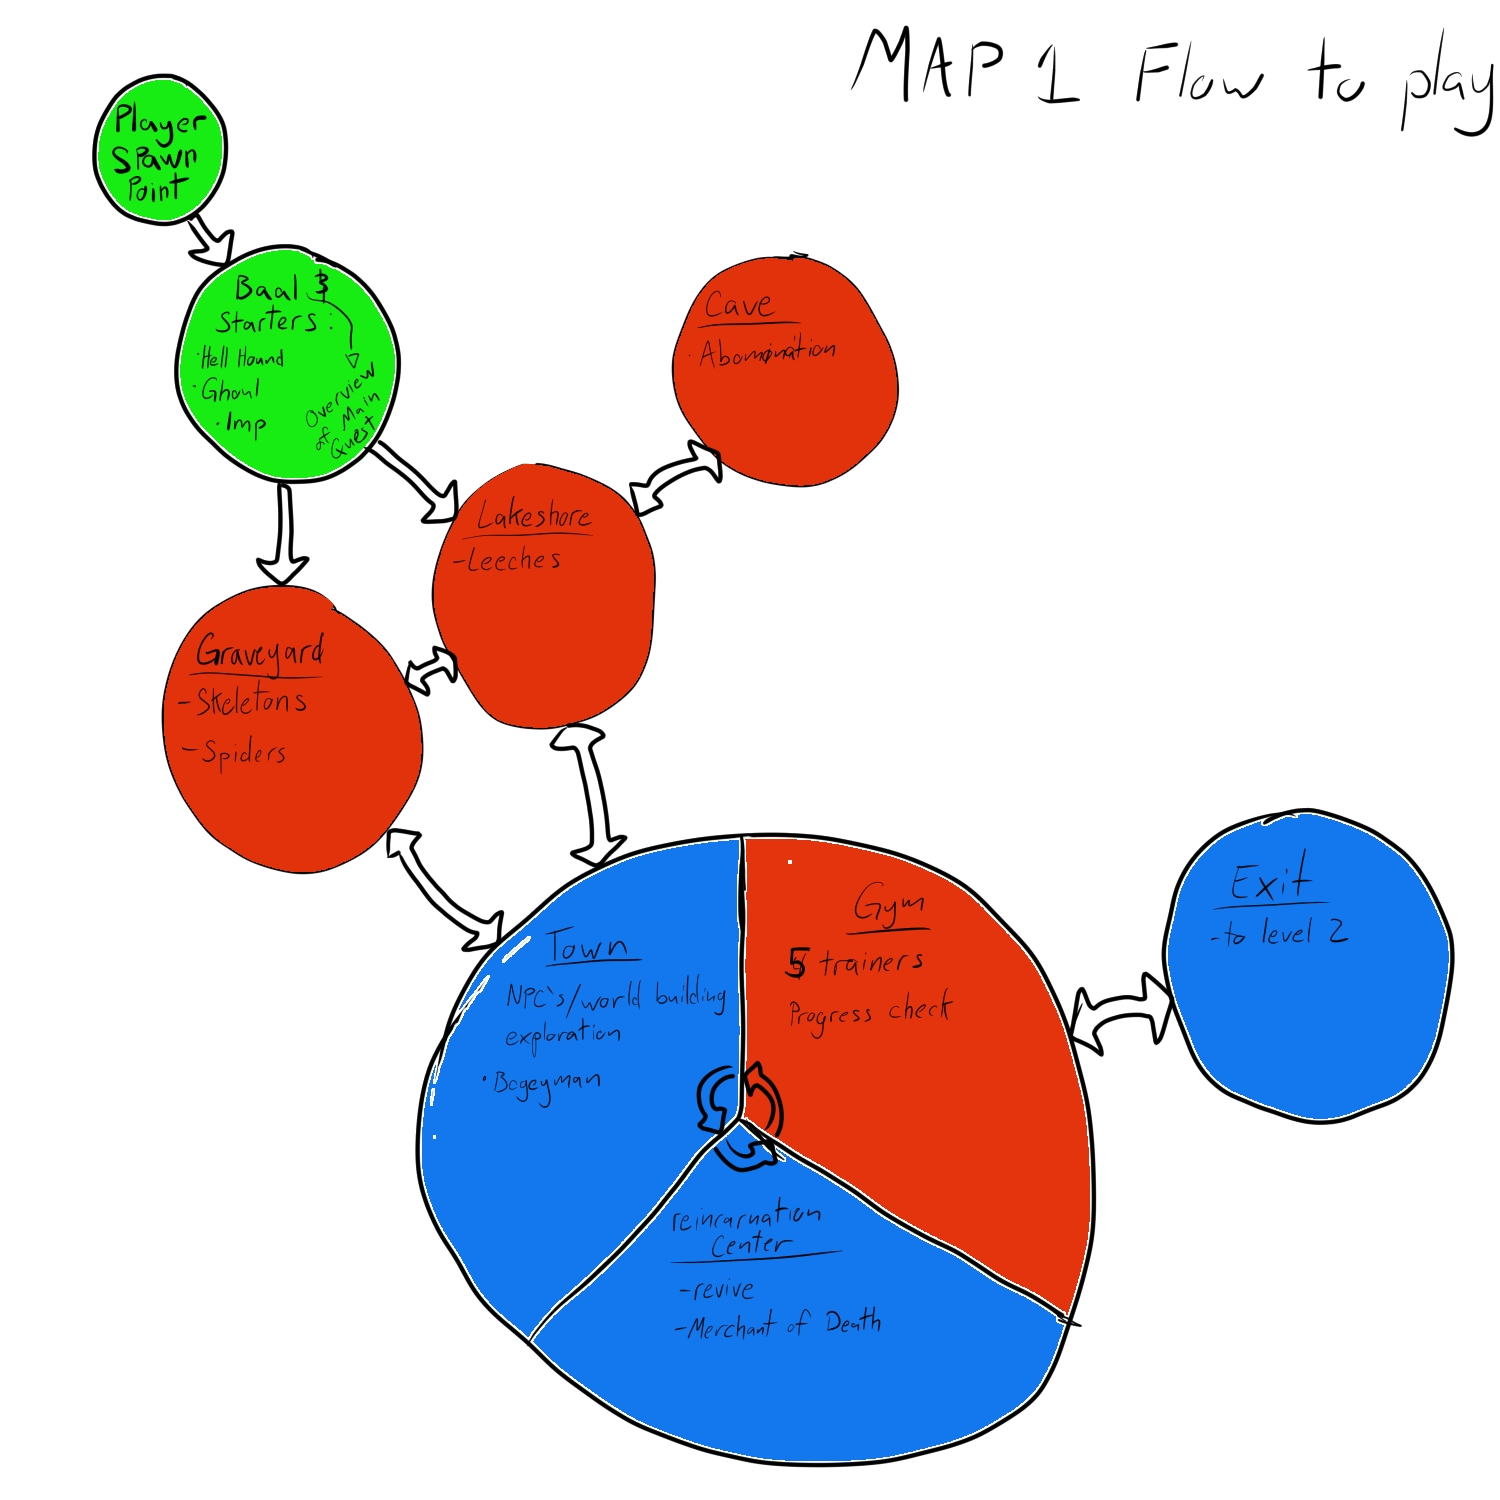 MAP 1 Flow to play
Player
Spawn
Point
Baal &
Starters:
·Hell Hound
·Ghoul
·Imp
Overview
of Main
Quest
Cave
· Abomination
Lakeshore
-Leeches
Graveyard
-Skeletons
-Spiders
Town
NPC's/world building
exploration
·Bogeyman
Gym
5 trainers
Progress check
Exit
-to level 2
reincarnation
Center
-revive
-Merchant of Death